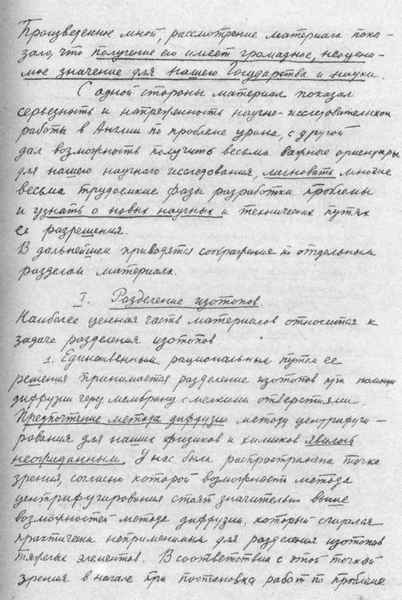 Произведенное мной, рассмотрение материала пока-
зало, что получение его имеет громадное, неоцени-
мое значение для нашего Государства и науки.
С одной стороны материал показал
серьезность и напряженность научно-исследовательской
работы в Англии по проблеме урана, с другой
дал возможность получить весьма важные ориентиры
для нашего научного исследования, миновать многие
весьма трудоемкие фазы разработки проблемы
и узнать о новых научных и технических путях
ее разрешения.
В дальнейшем приводятся соображения по отдельным
разделам материала.
I. Разделение изотопов.
Наиболее ценная часть материалов относится к
задаче разделения изотопов
1. Единственным рациональным путем ее
решения принимается разделение изотопов при помощи
диффузии через мембрану с мелкими отверстиями.
Предпочтение метода диффузии методу центрифуги-
рования для наших физиков и химиков явилось
неожиданным. У нас была распространена точка
зрения, согласно которой возможности метода
центрифугирования стоят значительно выше
возможностей метода диффузии, который считался
практически неприменимым для разделения изотопов
тяжелых элементов. В соответствии с этой точкой
зрения в начале при постановке работ по проблеме